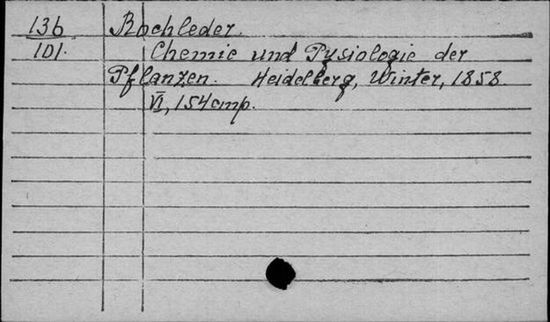 136 Rochleder.
101. Chemie und Pysiologie der
Pflanzen. Heidelberg, Winter, 1858
VI, 154 стр.